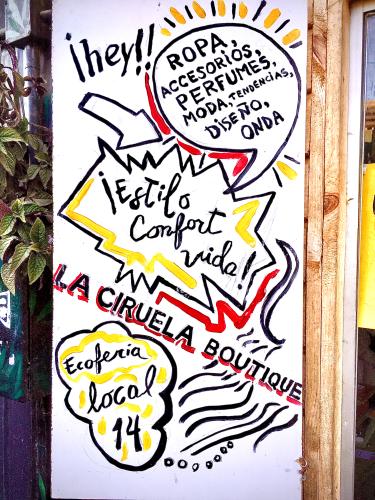 ¡hey!!
ROPA,
ACCESORIOS,
PERFUMES,
MODA, TENDENCIAS,
DISEÑO,
ONDA
¡Estilo
Confort
vida!
LA CIRUELA BOUTIQUE
Ecoferia
local
14